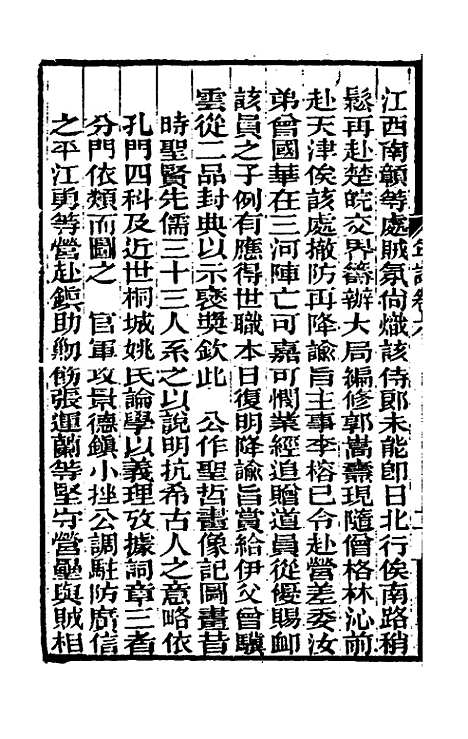 江西南贛等處賊氛尚熾該侍郎未能卽日北行俟南路稍
鬆再赴楚皖交界籌辦大局編修郭嵩燾現隨僧格林沁前
赴天津俟該處撤防再降諭旨主事李榕已令赴營差委汝
弟曾國華在三河陣亡可嘉可憫業經追贈道員從優賜卹
該員之子例有應得世職本日復明降諭旨賞給伊父曾驥
雲從二品封典以示褒奬欽此　公作聖哲畫像記圖畫昔
時聖賢先儒三十三人系之以說明抗希古人之意略依
孔門四科及近世桐城姚氏論學以義理攷據詞章三者
分門依類而圖之　官軍攻景德鎮小挫公調駐防廣信
之平江勇等營赴鎮助勦飭張運蘭等堅守營壘與賊相
年譜卷六